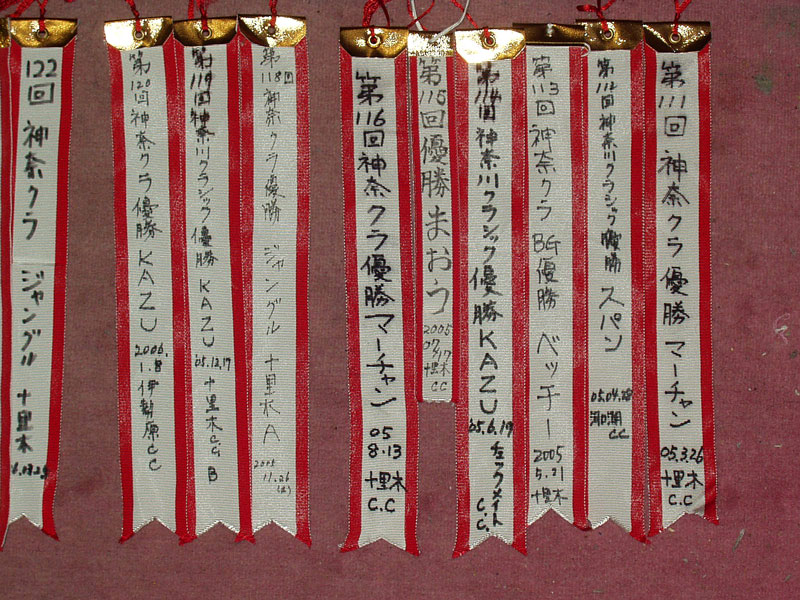 第111回 神奈クラ 優勝 マーチャン
05.3.26
十里木
C.C
第112回 神奈川クラシック 優勝 スパン
05.04.
CC
第113回 神奈クラ BG優勝 ベッチー
2005
5.21
十里木
第114回 神奈川クラシック 優勝 KAZU
05.6.19
チェックメイト
C.C.
第115回 優勝 まおう
2005
07/17
十里木
CC
第116回 神奈クラ 優勝 マーチャン
05
8.13
十里木
C.C
第118回 神奈クラ 優勝 ジャングル 十里木 A
2005
11.26
(土)
第119回 神奈川クラシック 優勝 KAZU
05.12.17
十里木CC B
第120回 神奈クラ 優勝 KAZU
2006.
1.8
伊勢原CC
122回 神奈クラ ジャングル 十里木